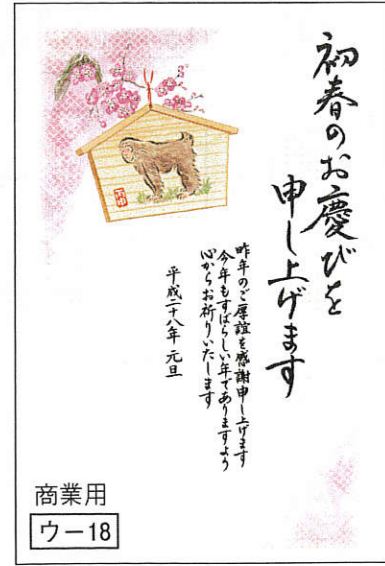 初春のお慶びを
申し上げます
昨年のご厚誼を感謝申し上げます
今年もすばらしい年でありますよう
心からお祈りいたします
平成二十八年 元旦
商業用
ウー18